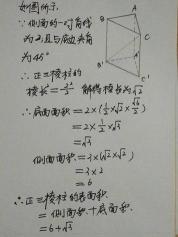 如图所示.
∵侧面的一对角线
为2,且与底边夹角
为45°
∴正三棱柱的
棱长=2/√2 解得棱长为√2
∴底面面积=2×(1/2×√2×√6/2)
=2×1/2×√3
=√3
侧面面积=3×(√2×√2)
=3×2
=6
∴正三棱柱的表面积
=侧面面积+底面积.
=6+√3
A
B
C
A'
B'
C'